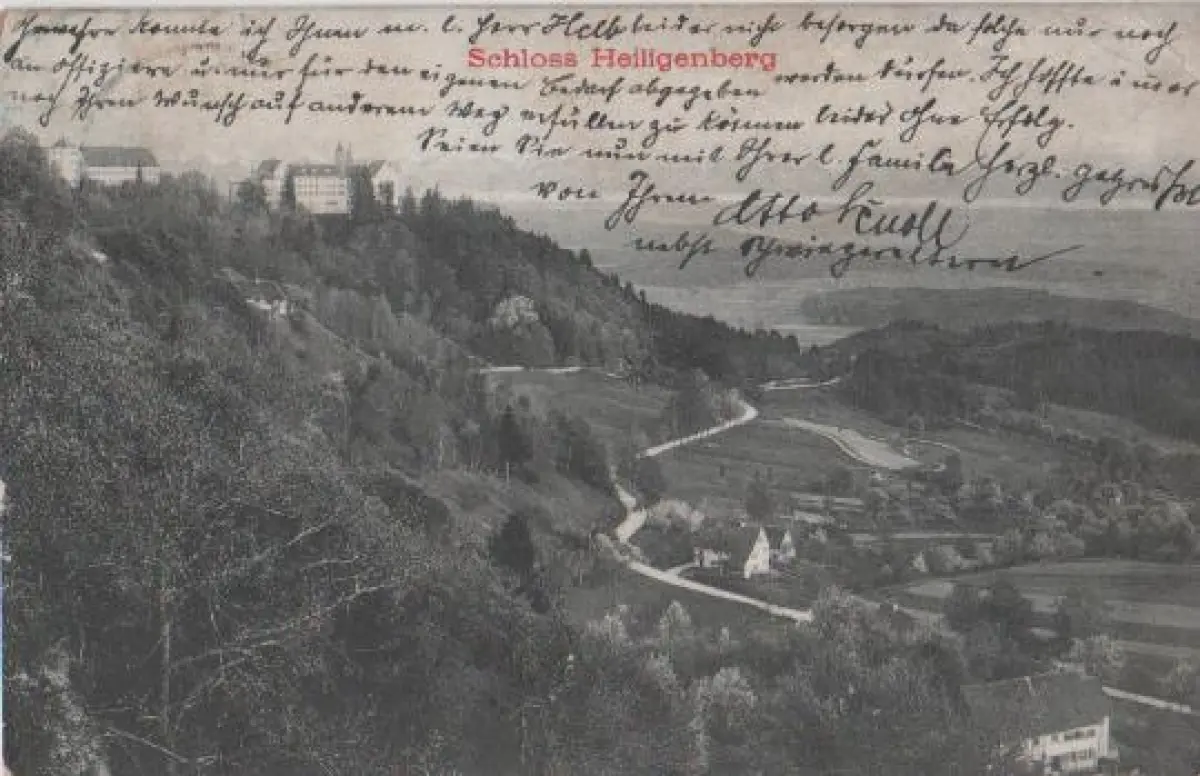 Gewehre konnte ich Ihnen m. l. Herr Helb leider nicht besorgen da solche nur noch
Schloss Heiligenberg
an Offiziere u. nur für den eigenen Bedarf abgegeben werden dürfen. Ich hoffte immer
noch Ihren Wunsch auf anderem Weg erfüllen zu können leider ohne Erfolg.
Seien Sie nun mit Ihrer l. Familie herzl. gegrüßt
von Ihrem Otto Knoll
nebst Schwiegereltern